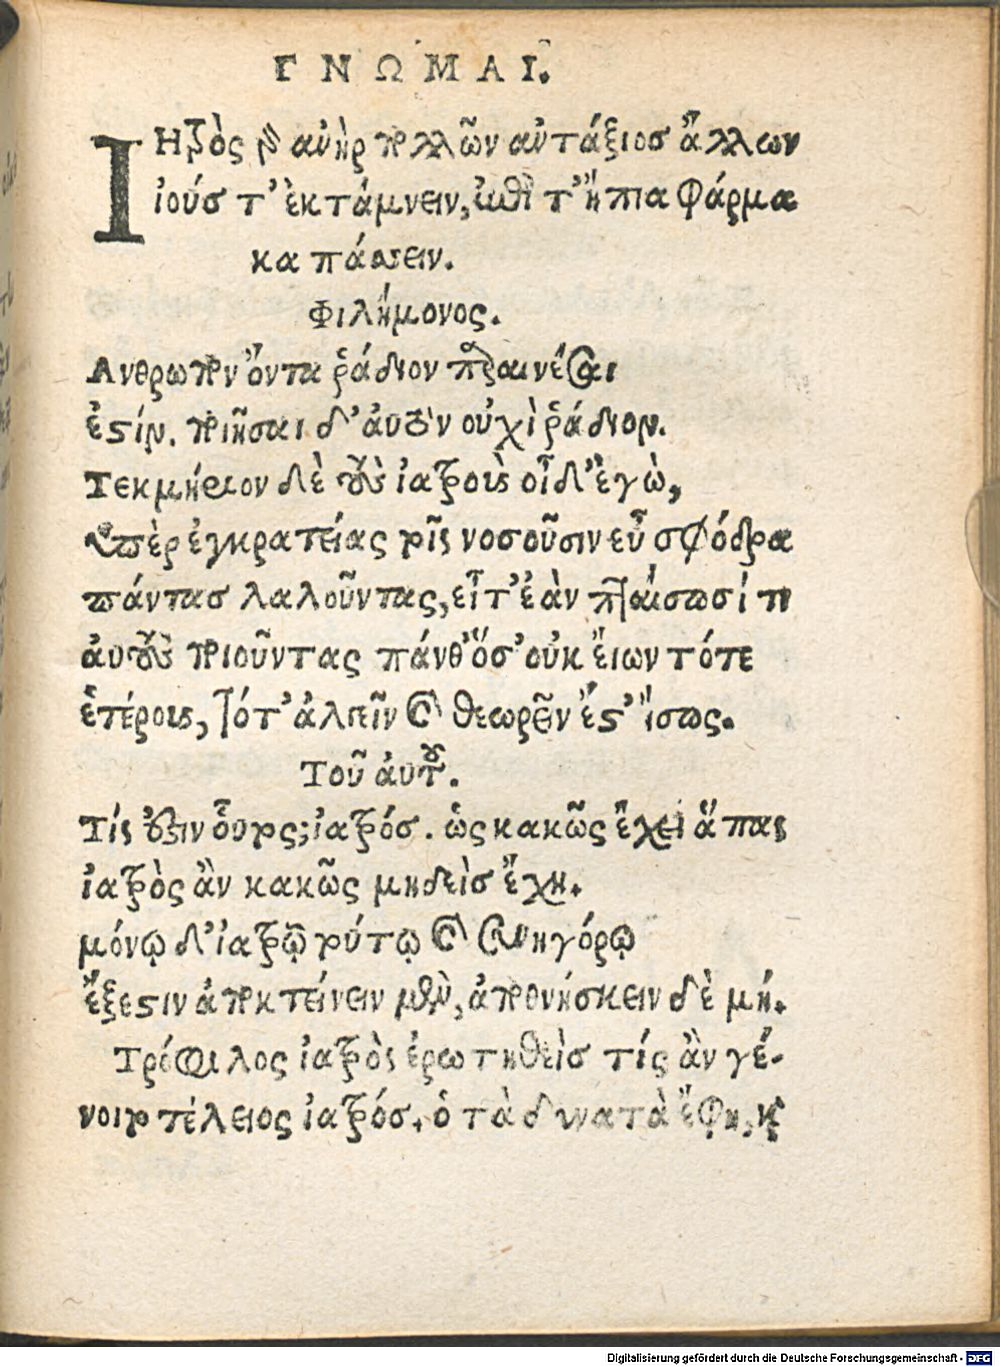 ΓΝΩΜΑΙ.
Ιητρὸς γὰρ ἀνὴρ πολλῶν ἀντάξιος ἄλλων
ἰούς τ' ἐκτάμνειν, ἐπὶ τ' ἤπια φάρμα
κα πάσσειν.
Φιλήμονος.
Ανθρωπον ὄντα ῥάδιον παραινέσαι
ἐστίν. ποιῆσαι δ' ἀυτὸν οὐχὶ ῥάδιον.
Τεκμήριον δὲ τοὺς ἰατροὺς οἶδ' ἐγὼ,
ὑπὲρ ἐγκρατείας τοῖς νοσοῦσιν εὖ σφόδρα
πάντας λαλοῦντας, εἶτ' ἐὰν πταίσωσί τι
ἀυτοὺς ποιοῦντας πάνθ' ὅσ' οὐκ ἔιων τότε
ἑτέροις, τότ' ἀλγεῖν καὶ θεωρεῖν ἔστ' ἴσως.
Τοῦ ἀυτοῦ.
Τίς ἐστιν οὗτος; ἰατρός. ὡς κακῶς ἔχει ἅπας
ἰατρὸς ἂν κακῶς μηδεὶς ἔχῃ.
μόνῳ δ' ἰατρῷ τούτῳ καὶ συνηγόρῳ
ἔξεστιν ἀποκτείνειν μὲν, ἀποθνήσκειν δὲ μή.
Τρόφιλος ἰατρὸς ἐρωτηθεὶς τίς ἂν γέ-
νοιτο τέλειος ἰατρός. ὁ τὰ δυνατὰ ἔφη, καὶ
Digitalisierung gefördert durch die Deutsche Forschungsgemeinschaft - DFG